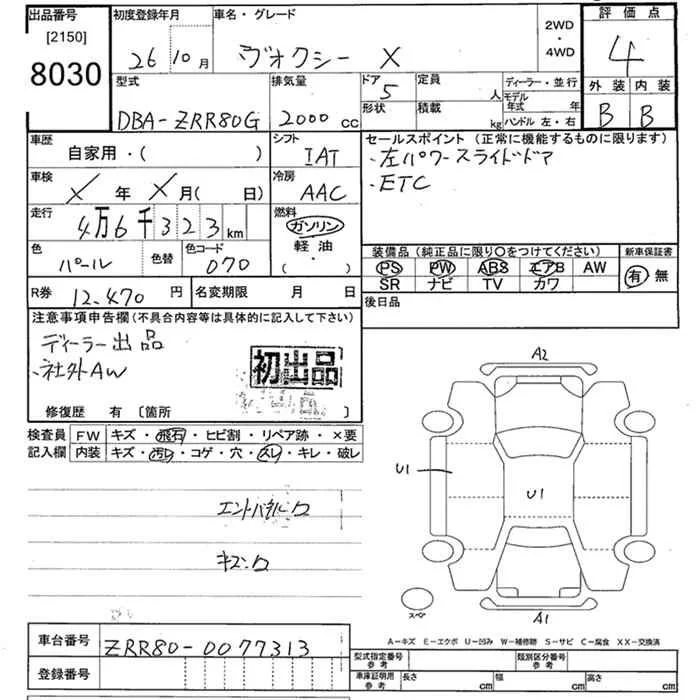 出品番号
[2150]
8030
初度登録年月
26 10月
車名・グレード
ヴオクシー X
2WD
・
4WD
評価点
4
外装 内装
B B
型式
DBA-ZRR80G
排気量
2000 cc
ドア
5
形状
定員
人
積載
kg
ディーラー・並行
モデル
年式 年
ハンドル 左・右
車歴
自家用・( )
シフト
IAT
セールスポイント (正常に機能するものに限ります)
・左パワースライドドア
・ETC
車検
X年 X月( 日)
冷房
AAC
走行
4万6千323km
燃料
ガソリン
軽油
( ・ )
色
パール
色替
色コード
070
装備品 (純正品に限り○をつけてください)
PS PW ABS エアB AW
SR ナビ TV カワ
新車保証書
有 無
R券 12,470 円
名変期限 月 日
後日品
注意事項申告欄 (不具合内容等は具体的に記入して下さい)
ディーラー出品
・社外AW
初出品
修復歴 有 〔箇所 〕
検査員
記入欄
FW キズ・飛石・ヒビ割・リペア跡・×要
内装 キズ・汚レ・コゲ・穴・スレ・キレ・破レ
キズ・ワ
A2
U1
U1
A1
スペア
A-キズ E-エクボ U-凹み W-補修跡 S-サビ C-腐食 XX-交換済
車台番号 ZRR80-0077313
登録番号
型式指定番号
参考
類別区分番号
参考
車庫証明用
参考
長さ cm
幅 cm
高さ cm